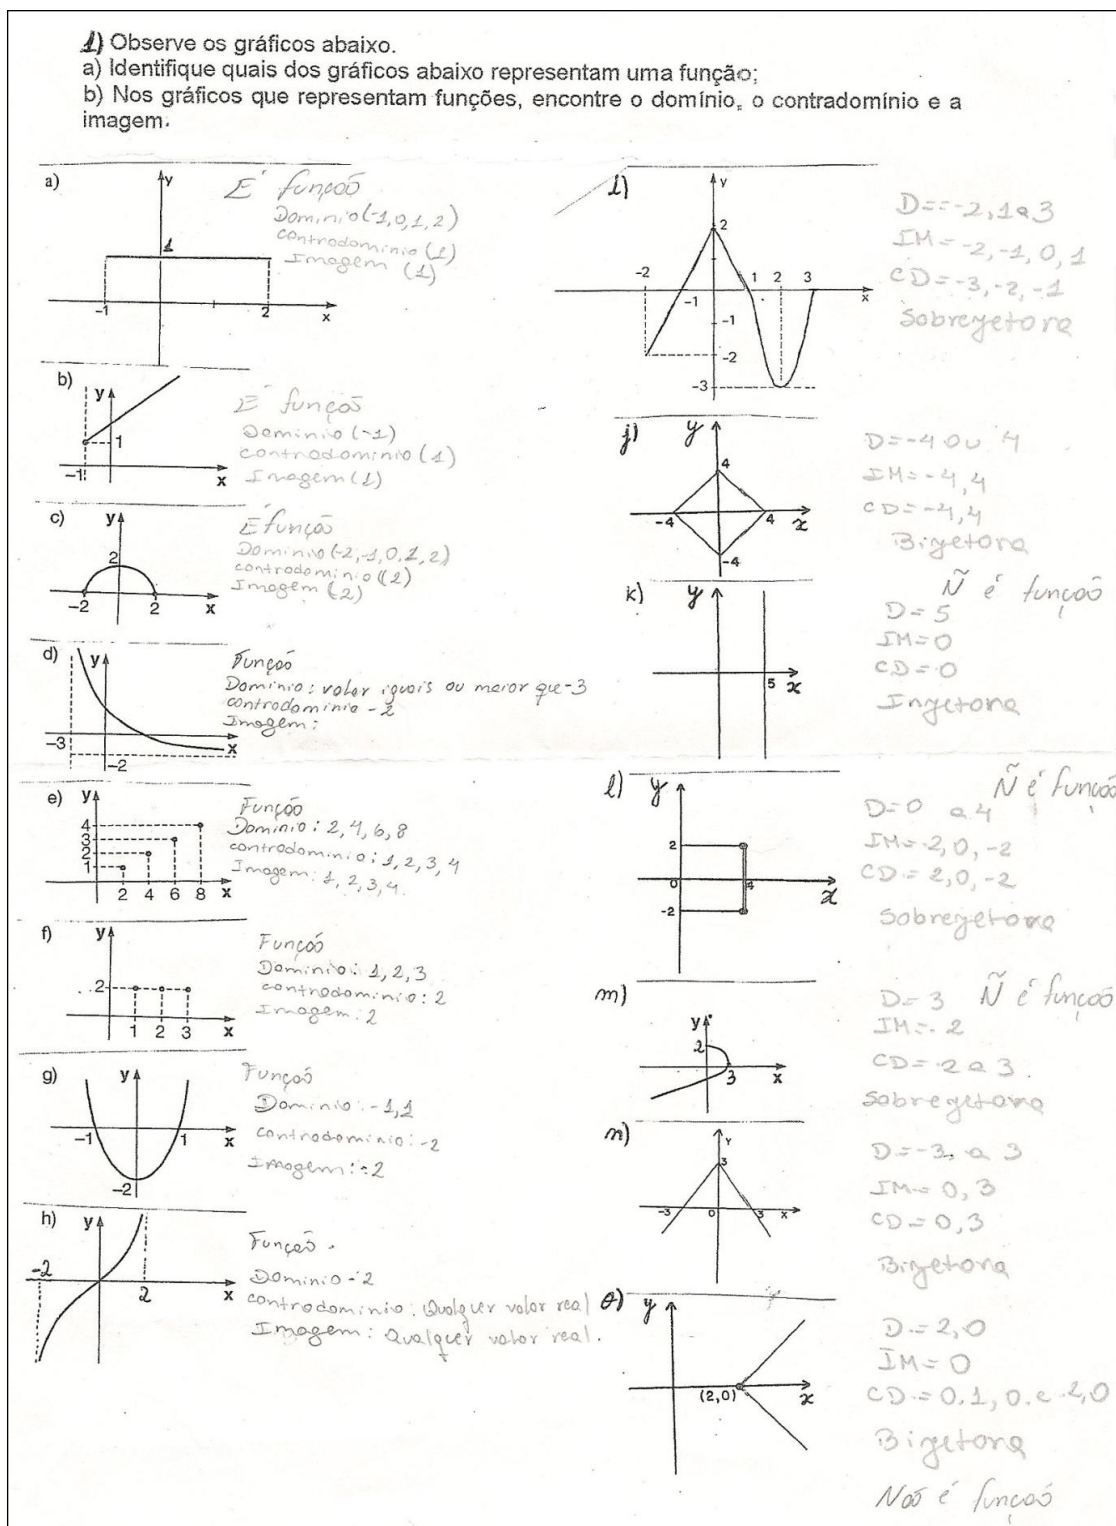 1) Observe os gráficos abaixo.
a) Identifique quais dos gráficos abaixo representam uma função;
b) Nos gráficos que representam funções, encontre o domínio, o contradomínio e a
imagem.
a)
y
1
-1
2
x
É função
Domínio (-1,0,1,2)
contradomínio (1)
Imagem (1)
b)
y
1
-1
x
É função
Domínio (-1)
contradomínio (1)
Imagem (1)
c)
y
2
-2
2
x
É função
Domínio (-2,-1,0,1,2)
contradomínio (2)
Imagem (2)
d)
y
-3
x
-2
Função
Domínio: valor iguais ou maior que -3
contradomínio -2
Imagem:
e)
y
4
3
2
1
2 4 6 8 x
Função
Domínio: 2, 4, 6, 8
contradomínio: 1, 2, 3, 4
Imagem: 1, 2, 3, 4.
f)
y
2
1 2 3 x
Função
Domínio: 1, 2, 3
contradomínio: 2
Imagem: 2
g)
y
-1
1
x
-2
Função
Domínio: -1,1
contradomínio: -2
Imagem: -2
h)
y
-2
2
x
Função.
Domínio -2
contradomínio: Qualquer valor real
Imagem: Qualquer valor real.
y
2
-2
1 2 3
-1
x
-1
-2
-3
D==-2,1a3
IM=-2,-1,0,1
CD=-3,-2,-1
Sobrejetora
j)
y
4
-4
4
x
-4
D=-4 ou 4
IM=-4,4
CD=-4,4
Bijetora
k)
y
5
x
Ñ é função
D=5
IM=0
CD=0
Injetora
l)
y
2
0
4
x
-2
Ñ é função
D=0 a 4
IM=2,0,-2
CD=2,0,-2
Sobrejetora
m)
y
2
3
x
D=3 Ñ é função
IM=-2
CD=-2 a 3
Sobrejetora
n)
Y
3
-3
0
3
x
D=-3, a 3
IM=0,3
CD=0,3
Bijetora
o)
y
(2,0)
x
D=2,0
IM=0
Bijetora
Não é função